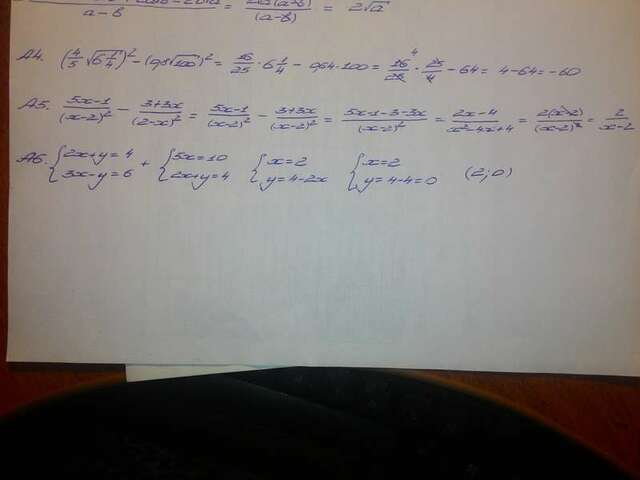 a-b = (a-b) = 2√a
A4. (4/5 √(6 1/4))² - (0,8√100)² = 16/25 · 6 1/4 - 0,64·100 = 16/25 · 25/4 - 64 = 4-64 = -60
A5. (5x-1)/(x-2)² - (3+3x)/(2-x)² = (5x-1)/(x-2)² - (3+3x)/(x-2)² = (5x-1-3-3x)/(x-2)² = (2x-4)/(x²-4x+4) = 2(x-2)/(x-2)² = 2/(x-2)
A6. {2x+y=4 + {5x=10 {x=2 {x=2 (2;0)
3x-y=6 2x+y=4 y=4-2x y=4-4=0